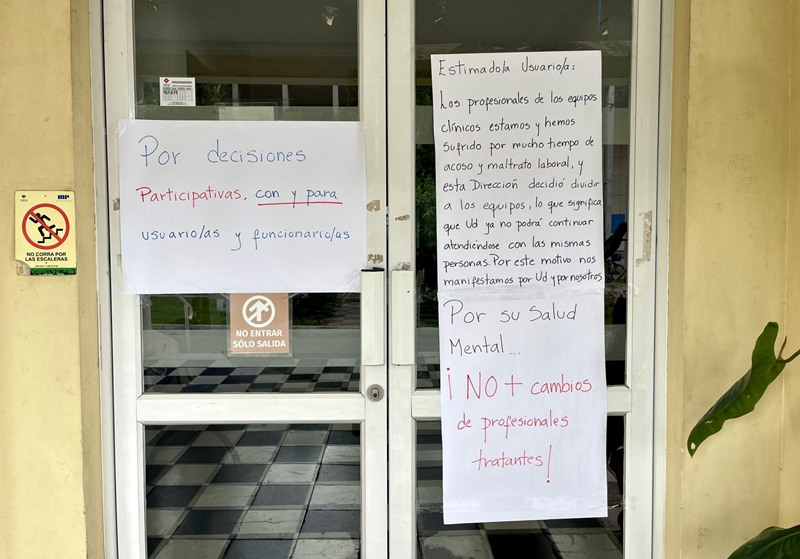 Por decisiones
Participativas, con y para
usuario/as y funcionario/as
Estimado/a Usuario/a:
Los profesionales de los equipos
clínicos estamos y hemos
sufrido por mucho tiempo de
acoso y maltrato laboral, y
esta Dirección decidió dividir
a los equipos, lo que significa
que Ud ya no podrá continuar
atendiéndose con las mismas
personas. Por este motivo nos
manifestamos por Ud y por nosotros
Por su Salud
Mental...
¡NO + cambios
de profesionales
tratantes!
NO CORRA POR
LAS ESCALERAS
NO ENTRAR
SÓLO SALIDA